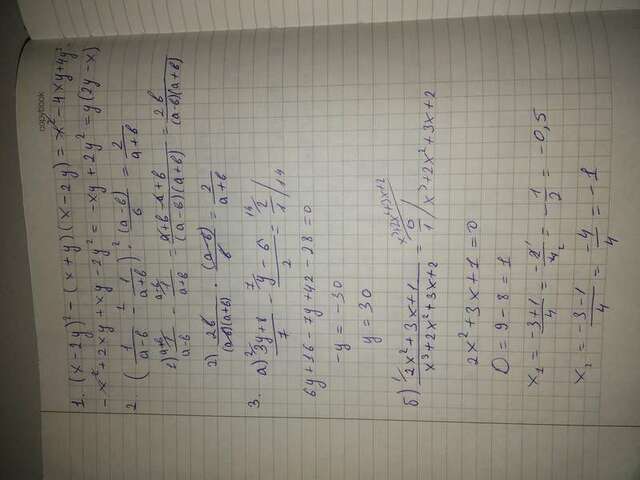 copybook
1. (x-2y)² - (x+y)(x-2y) = x² - 4xy + 4y² -
- x² + 2xy + xy - 2y² = -xy + 2y² = y(2y-x)
2. (1/(a-в) - 1/(a+в)) · (a-в)/в = 2/(a+в)
1) a+в/ 1/(a-в) - a-в/ 1/(a+в) = (a+в-a+в)/((a-в)(a+в)) = 2в/((a-в)(a+в))
2) 2в/((a-в)(a+в)) · (a-в)/в = 2/(a+в)
3. а) 2/ (3y+8)/7 - 7/ (y-6)/2 = 14/ 2/1 /14
6y+16-7y+42-28=0
-y = -30
y = 30
б) 1/ (2x²+3x+1)/(x³+2x²+3x+2) = x³+2x²+3x+2/ 0/1 / x³+2x²+3x+2
2x²+3x+1=0
D = 9-8 = 1
x₁ = (-3+1)/4 = -2/4 = -1/2 = -0,5
x₂ = (-3-1)/4 = -4/4 = -1